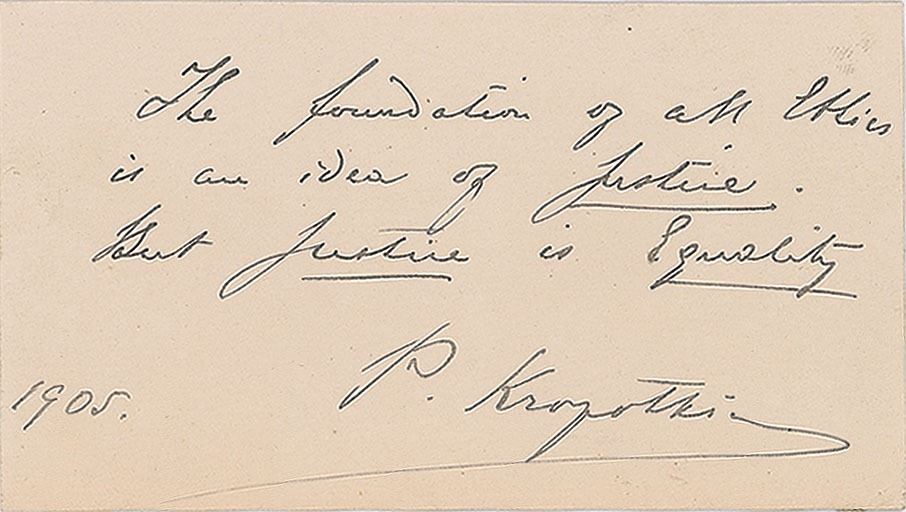 The foundation of all Ethics
is an idea of Justice.
But Justice is Equality
P. Kropotkin
1905.